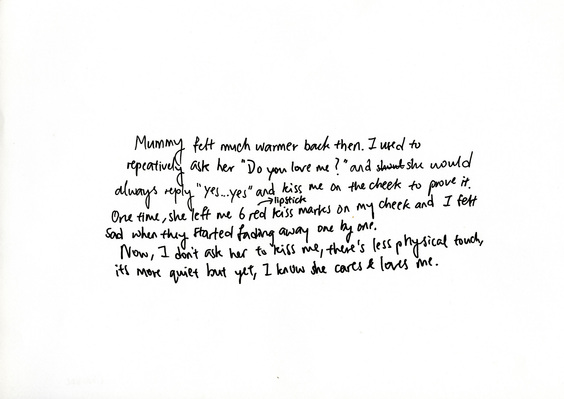 Mummy felt much warmer back then. I used to
repeatively ask her "Do you love me?" and she would
always reply "yes...yes" and kiss me on the cheek to prove it.
→lipstick
One time, she left me 6 red kiss marks on my cheek and I felt
sad when they started fading away one by one.
Now, I don't ask her to kiss me, there's less physical touch,
its more quiet but yet, I know she cares & loves me.